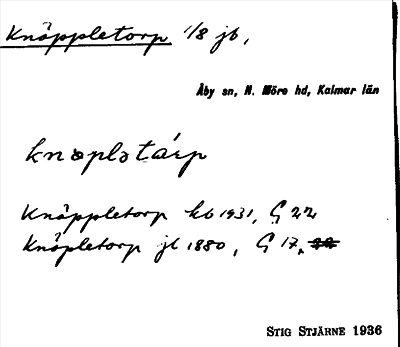 Knäppletorp 1/8 jb,
Åby sn, N. Möre hd, Kalmar län
knæplətárp
Knäppletorp kb 1931, G 22
Knäpletorp jb 1880, G 17,
STIG STJÄRNE 1936